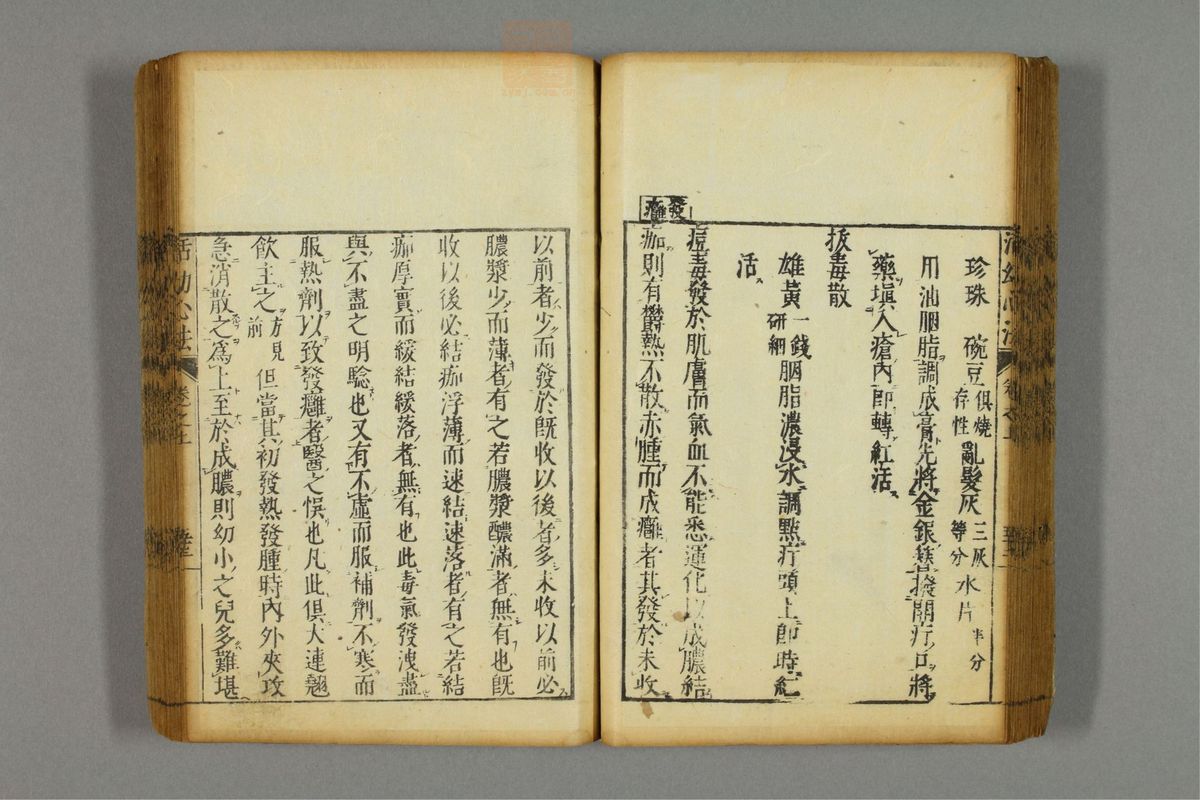 珍珠 碗豆俱燒存性亂髮灰三灰等分氷片半分
用油胭脂調成膏先將金銀簪撥開疔口將
藥填入瘡內即轉紅活
拔毒散
雄黃一錢研細胭脂濃浸水調點疔頭上即時紅
活
發癰
痘毒發於肌膚而氣血不能悉運化以成膿結
痂則有欝熱不散赤腫而成癰者其發於未收
以前者少而發於既收以後者多未收以前必
膿漿少而薄者有之若膿漿醲滿者無有也既
收以後必結痂浮薄而速結速落者有之若結
痂厚實而緩結緩落者無有也此毒氣發洩盡
與不盡之明騐也又有不虛而服補劑不寒而
服熱劑以致發癰者醫之悞也凡此俱大連翹
飲主之方見前但當其初發熱發腫時內外夾攻
急消散之為上至於成膿則幼小之兒多難堪
活幼心法 卷之上